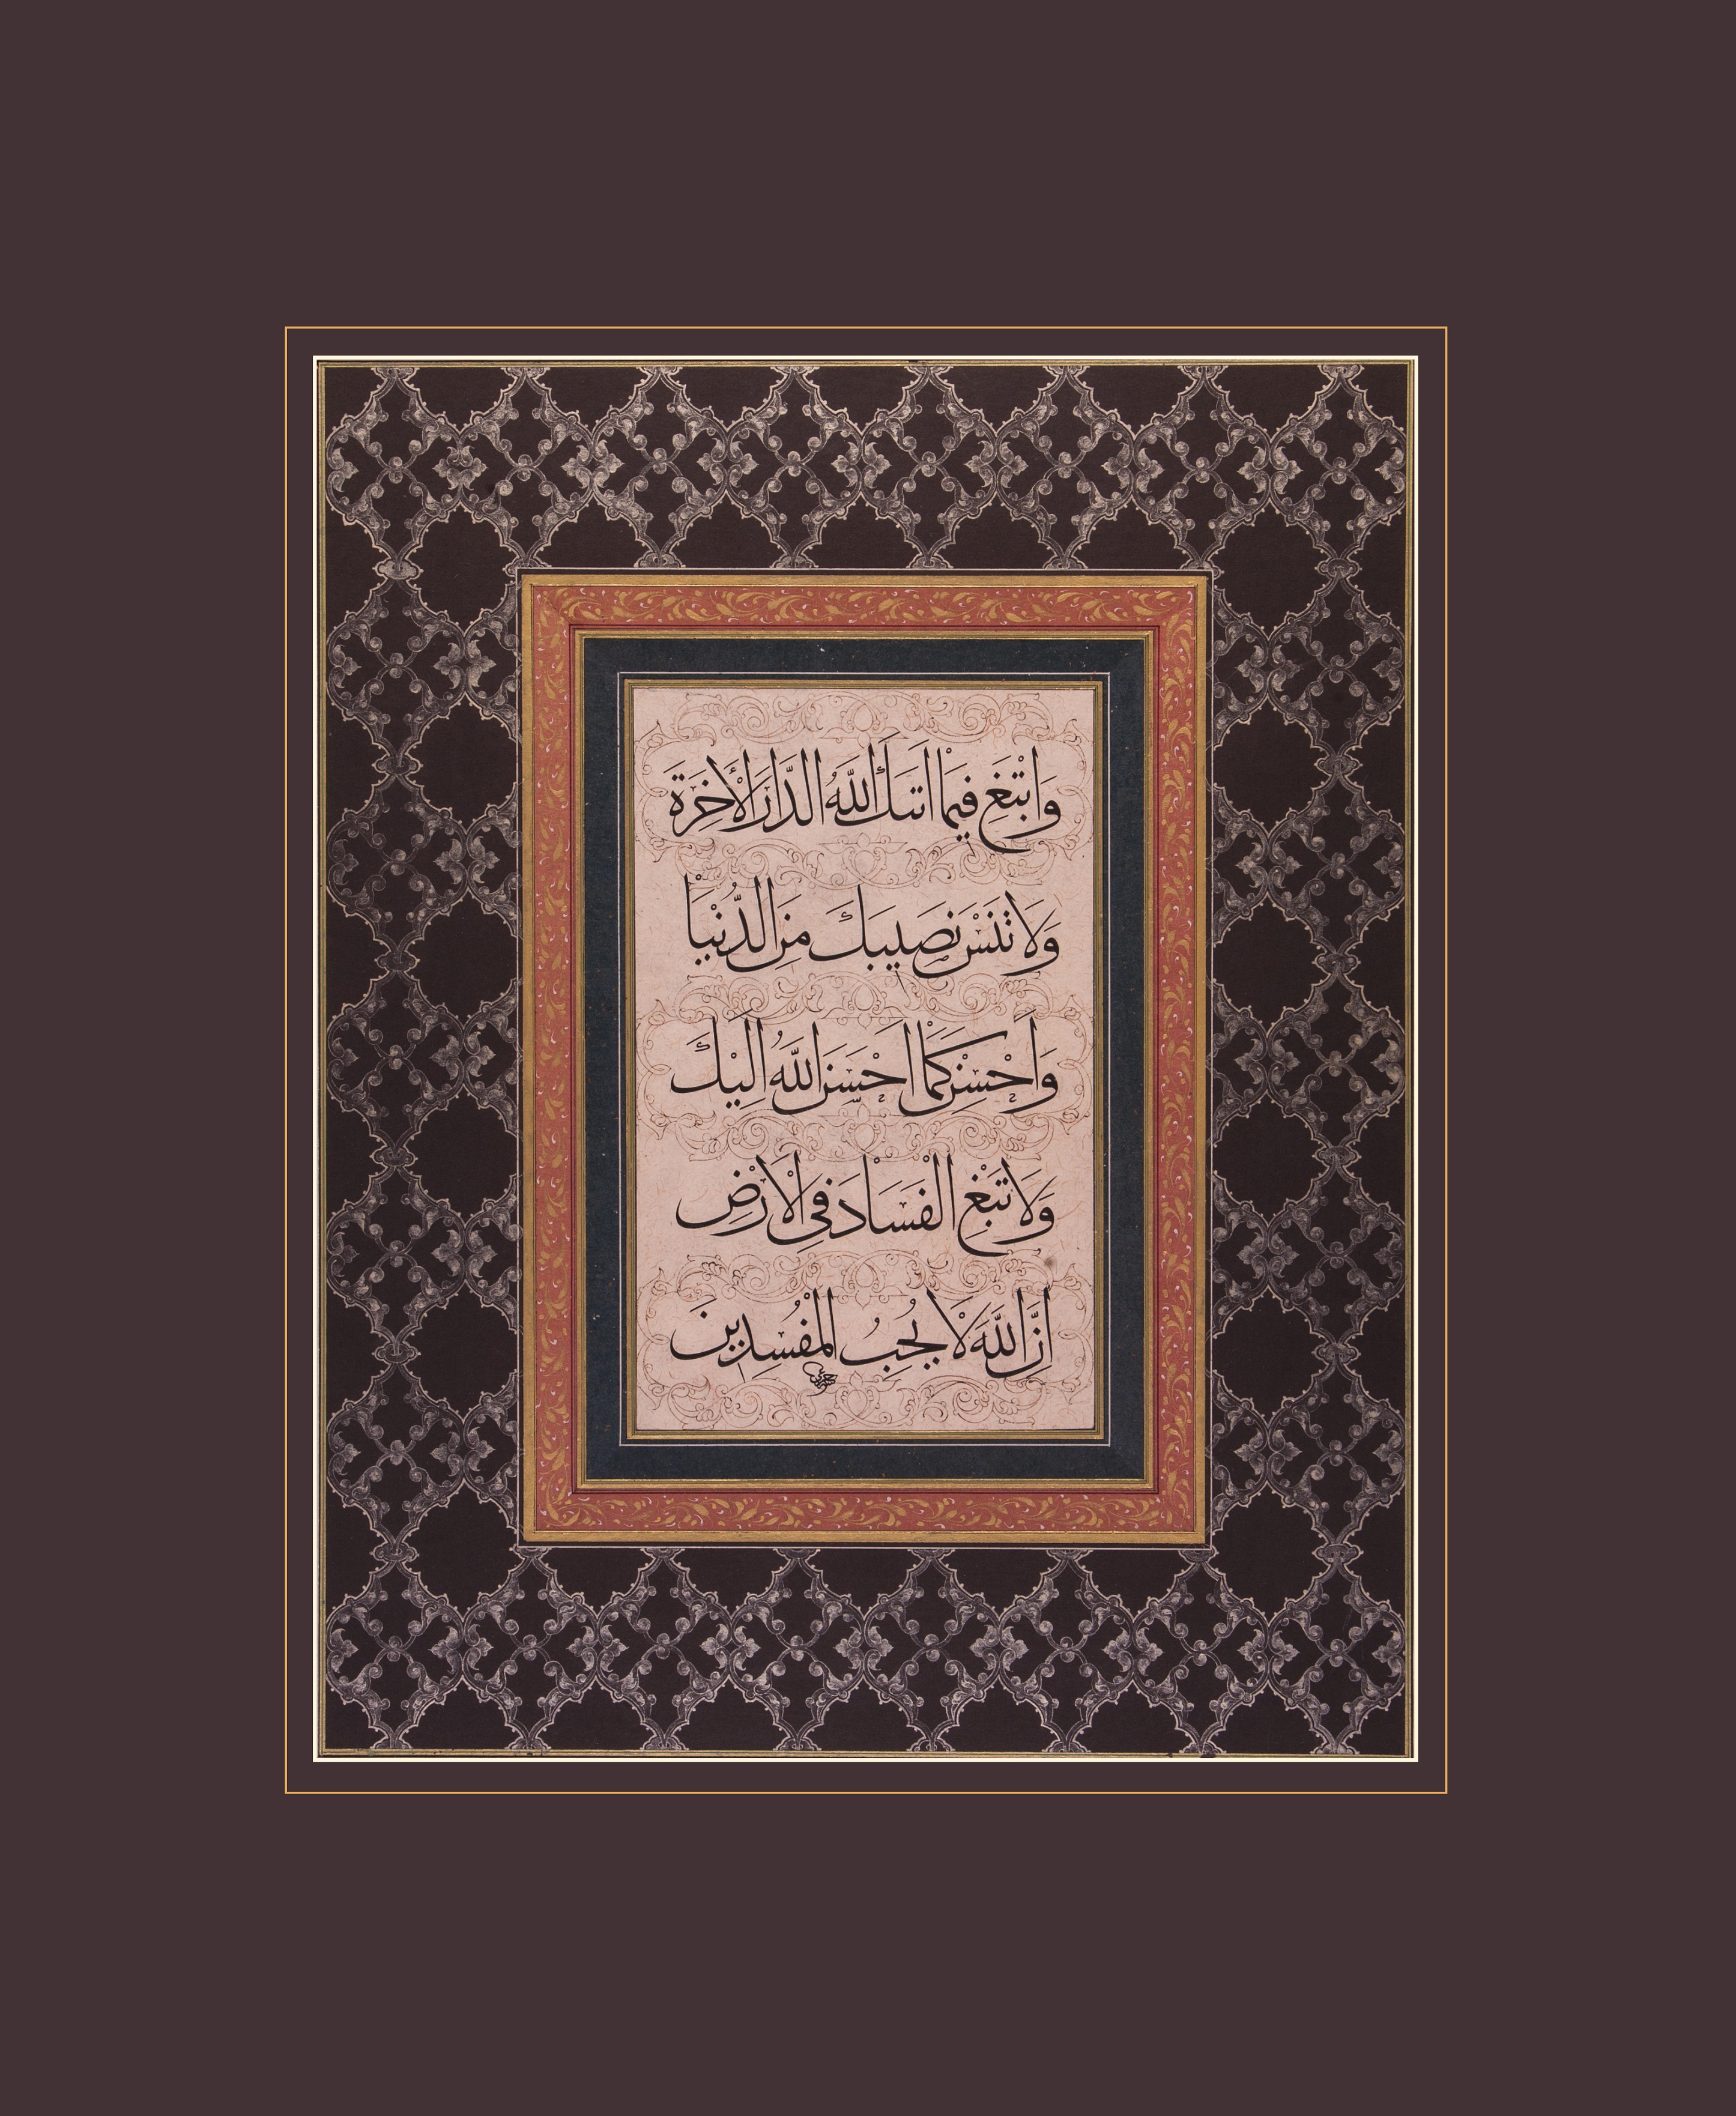 وَابْتَغِ فِيمَا اتَىكَ اللَّهُ الدَّارَ الْأَخِرَةَ
وَلَا تَنْسَ نَصِيبَكَ مِنَ الدُّنْيَا
وَاَحْسِنْ كَمَا اَحْسَنَ اللَّهُ اِلَيْكَ
وَلَا تَبْغِ الْفَسَادَ فِي الْاَرْضِ
اِنَّ اللَّهَ لَا يُحِبُّ الْمُفْسِدِينَ